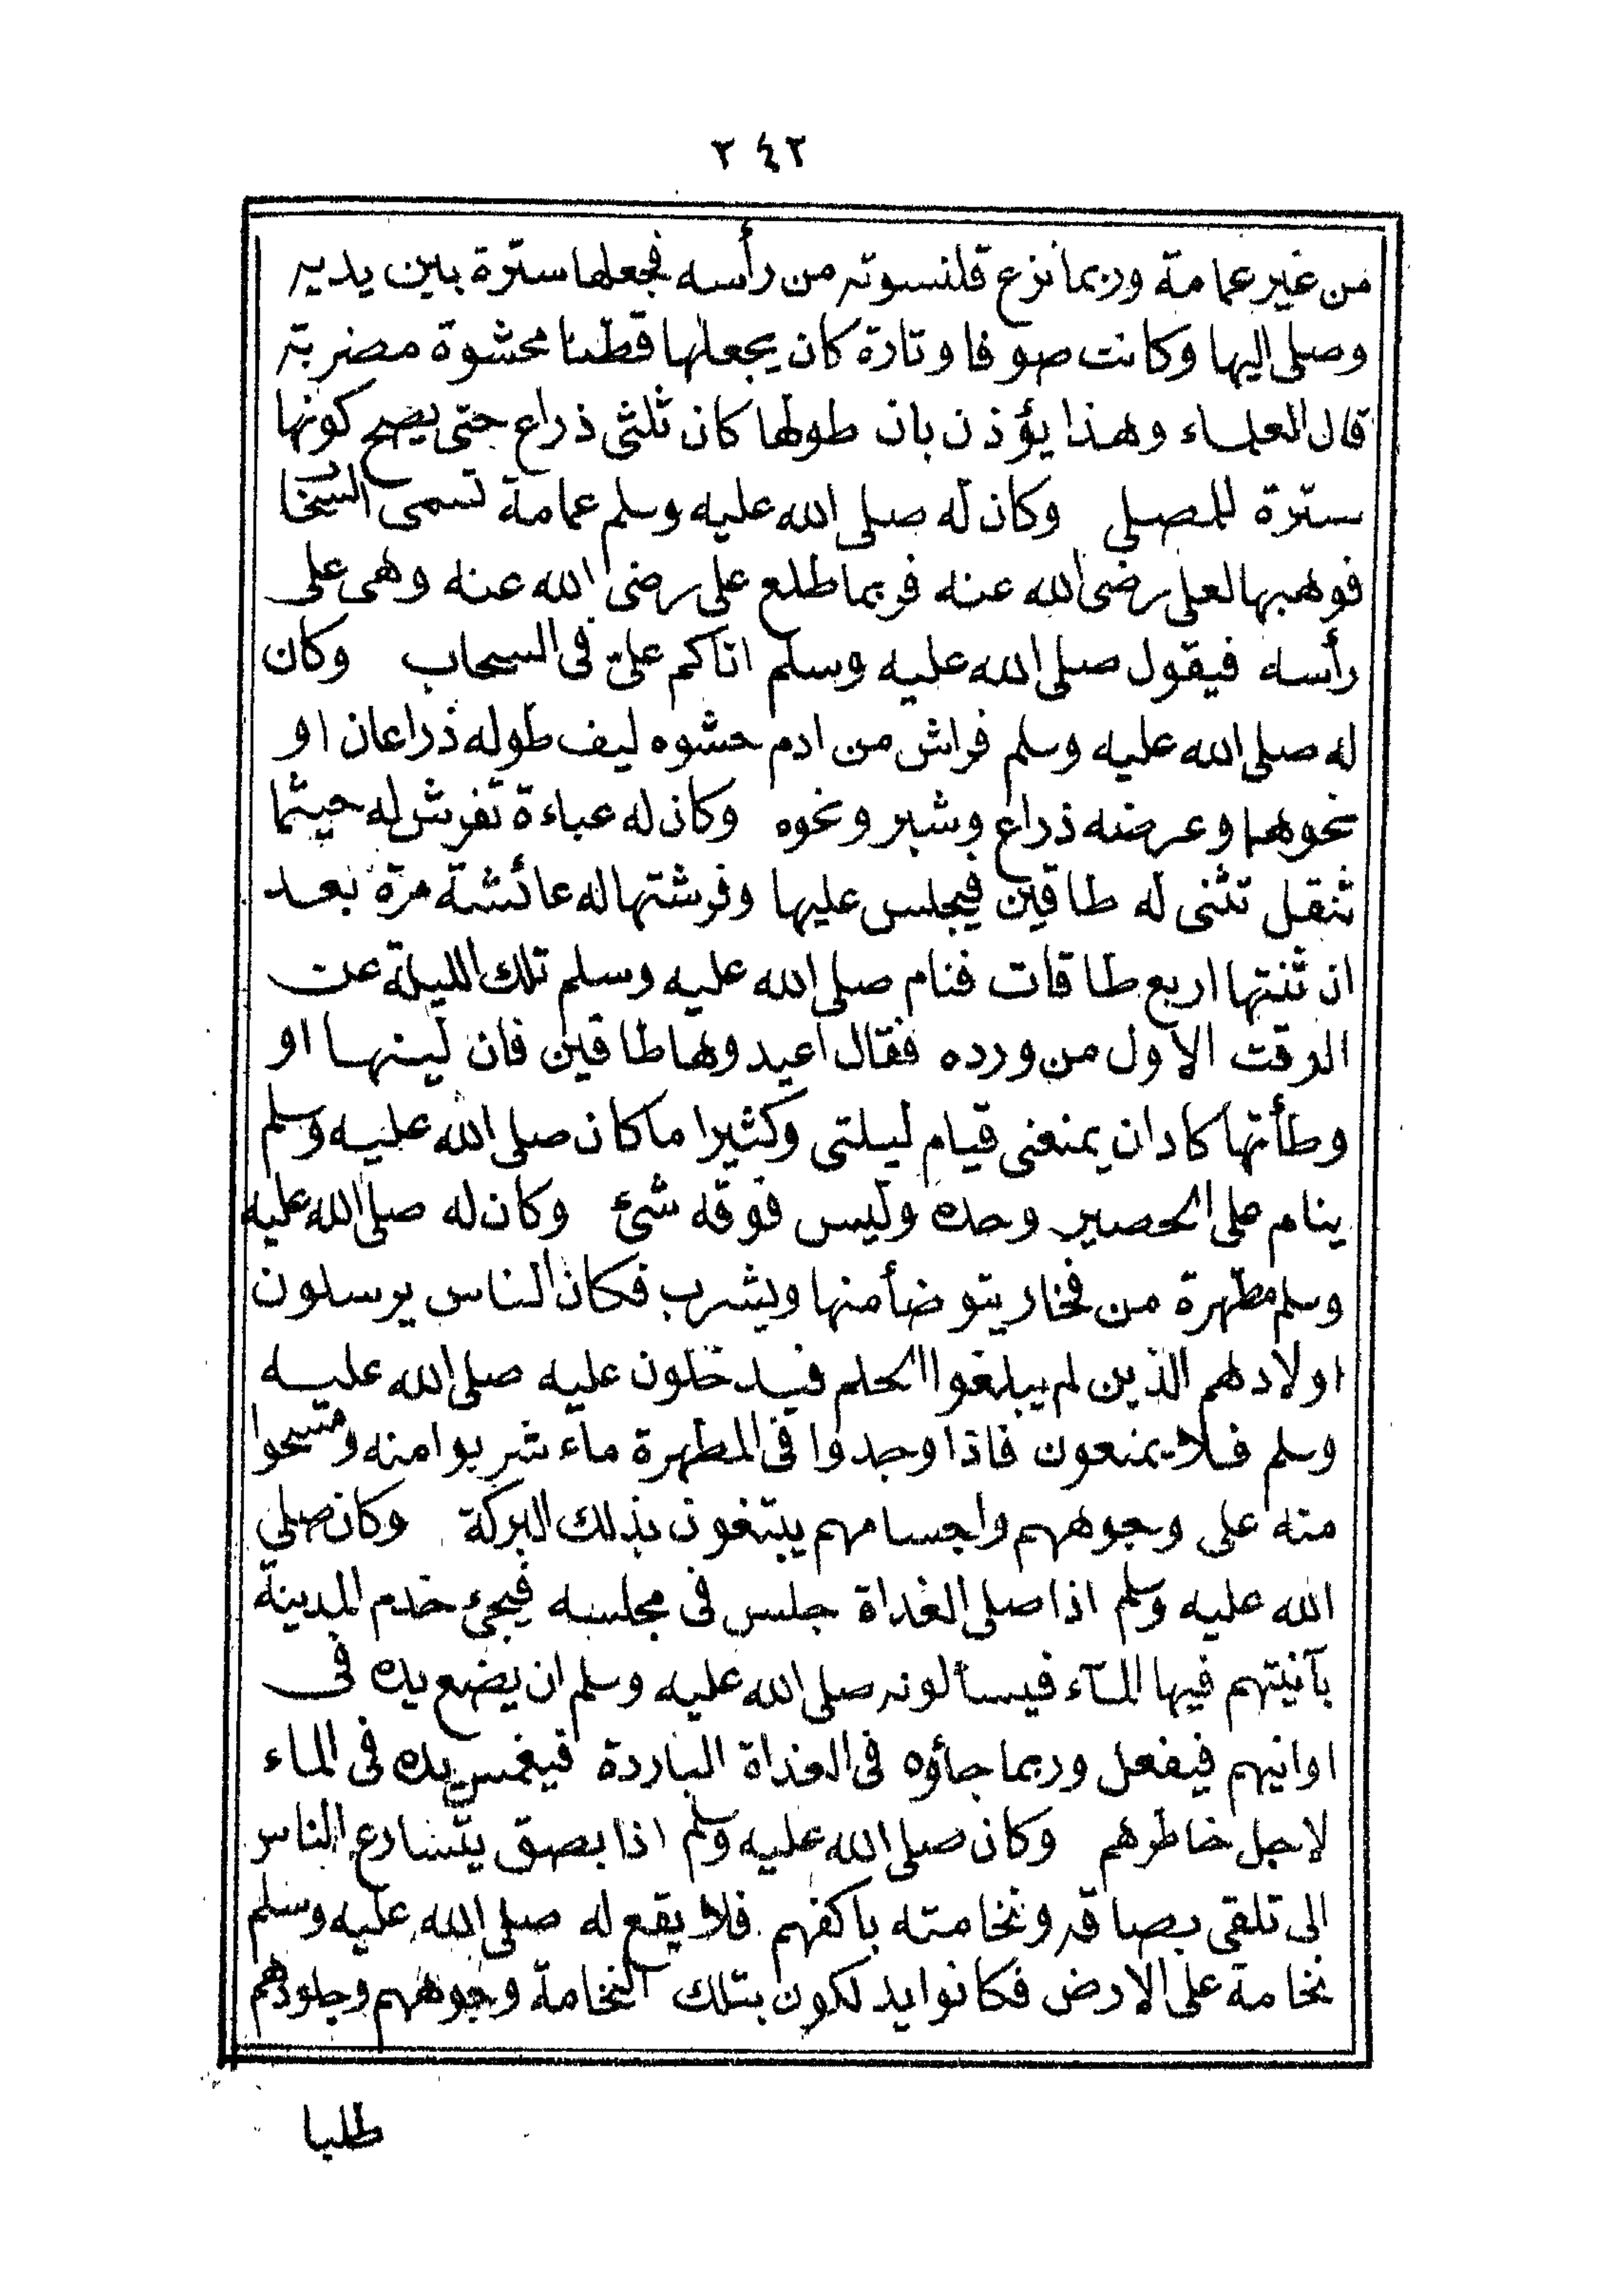 ٢٤٢
من غير عمامة وربما نزع قلنسوته من رأسه فجعلها سترة بين يديه
وصلى اليها وكانت صوفا وتارة كان يجعلها قطنا محشوة مضربة
قال العلماء وهذا يؤذن بان طولها كان ثلثى ذراع حتى يصح كونها
سترة للمصلى وكان له صلى الله عليه وسلم عمامة تسمى السحاب
فوهبها لعلى رضى الله عنه فربما طلع على رضى الله عنه وهى على
رأسه فيقول صلى الله عليه وسلم اتاكم علىّ فى السحاب وكان
له صلى الله عليه وسلم فراش من ادم حشوه ليف طوله ذراعان او
نحوهما وعرضه ذراع وشبر ونحوه وكان له عباءة تفرش له حيثما
تنقل تثنى له طاقين فيجلس عليها وفرشتها له عائشة مرة بعد
ان ثنتها اربع طاقات فنام صلى الله عليه وسلم تلك الليلة عن
الوقت الاول من ورده فقال اعيدوها طاقين فان لينها او
وطأتها كاد ان يمنعنى قيام ليلتى وكثيرا ما كان صلى الله عليه وسلم
ينام على الحصير وحده وليس فوقه شئ وكان له صلى الله عليه
وسلم مطهرة من فخار يتوضأ منها ويشرب فكان الناس يرسلون
اولادهم الذين لم يبلغوا الحلم فيدخلون عليه صلى الله عليه
وسلم فلا يمنعون فاذا وجدوا فى المطهرة ماء شربوا منه ومسحوا
منه على وجوههم واجسامهم يبتغون بذلك البركة وكان صلى
الله عليه وسلم اذا صلى الغداة جلس فى مجلسه فيجئ خدم المدينة
بآنيتهم فيها المآء فيسألونه صلى الله عليه وسلم ان يضع يده فى
اوانيهم فيفعل وربما جاؤه فى الغداة الباردة فيغمس يده فى الماء
لاجل خاطرهم وكان صلى الله عليه وسلم اذا بصق يتسارع الناس
الى تلقى بصاقه ونخامته باكفهم فلا يقع له صلى الله عليه وسلم
نخامة على الارض فكانوا يدلكون بتلك النخامة وجوههم وجلودهم
طلبا